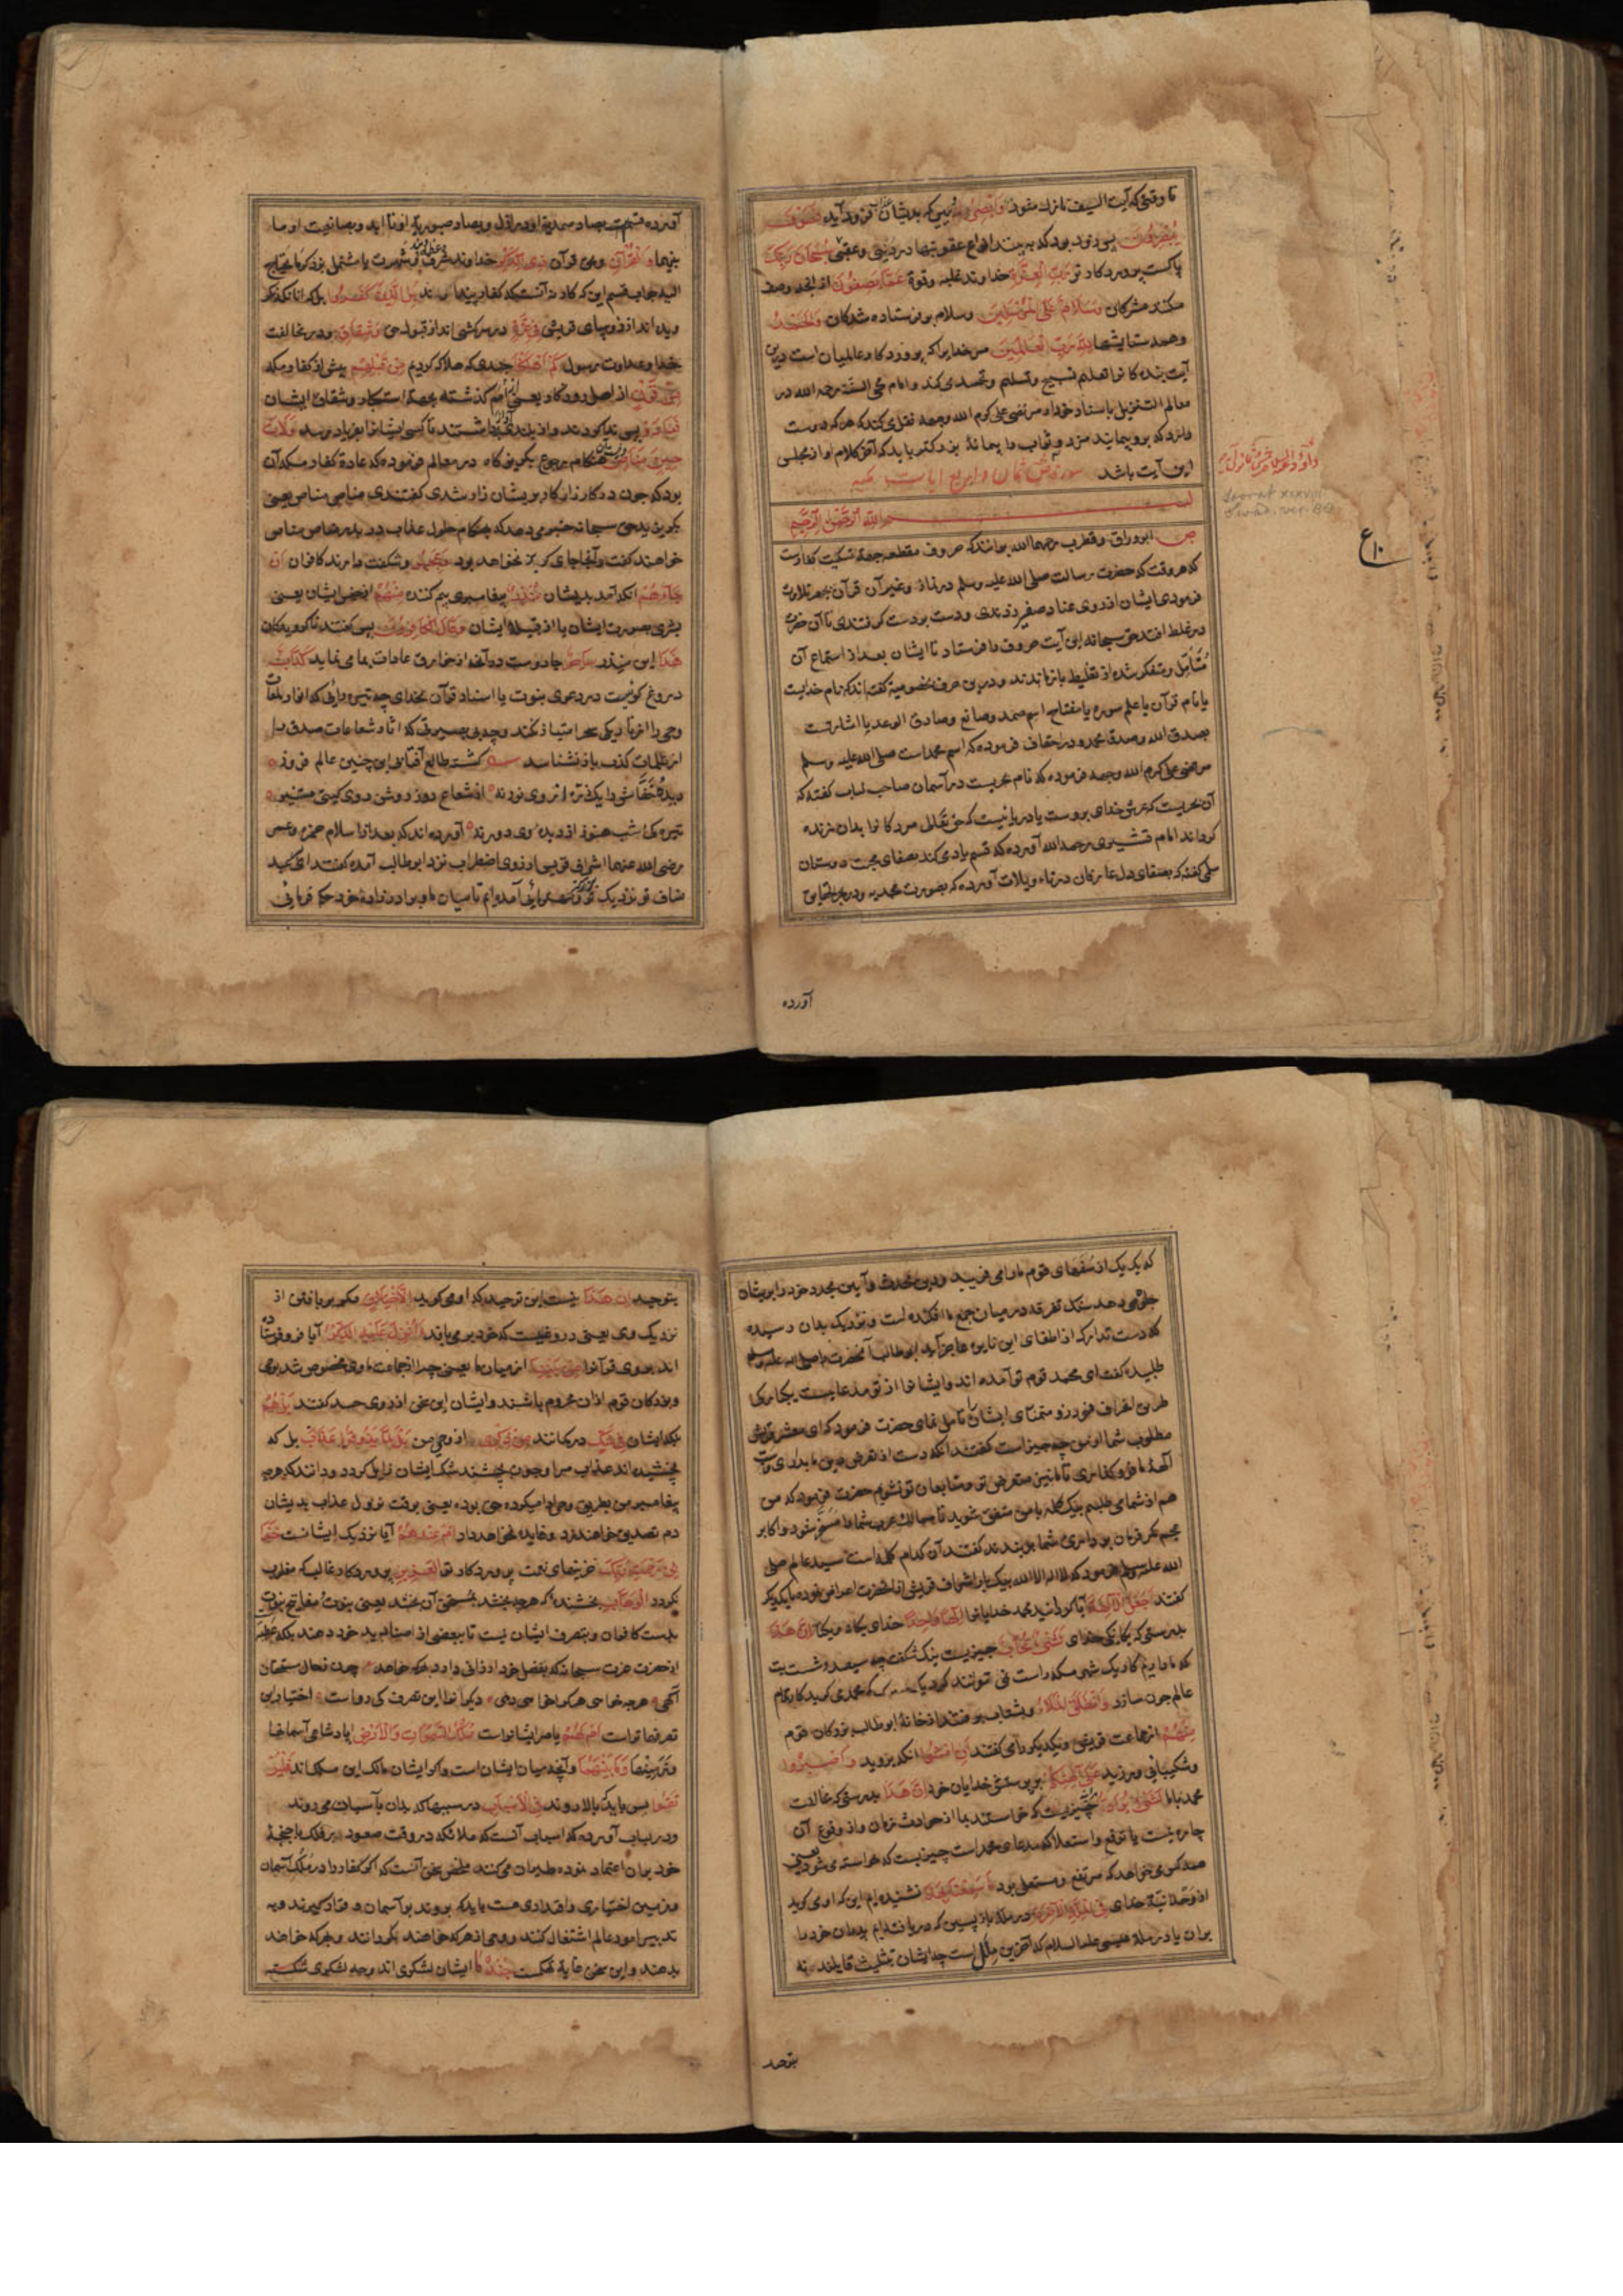 تا وقتی که آیت السیف نازل شود وَأَبْصِرْ و ببین که بدیشان فرود آید فَسَوْفَ
يُبْصِرُونَ پس زود بود که به بینند انواع عقوبتها در دنیی و عقبی سُبْحَانَ رَبِّكَ
پاکست پروردکار تو رَبِّ الْعِزَّةِ خداوند غلبه و قوة عَمَّا يَصِفُونَ از آنچه وصف
میکنند مشرکان وَسَلَامٌ عَلَى الْمُرْسَلِينَ و سلام بر فرستاده شدکان وَالْحَمْدُ
و همه ستایشها لِلَّهِ رَبِّ الْعَالَمِينَ مر خدایرا که پروردکار عالمیان است درین
آیت بندکانرا تعلیم تسبیح و تسلیم و تحمید می کند و امام محی السنة رحمه الله در
معالم التنزیل باسناد خود از مرتضی علی کرم الله وجهه نقل می کند که هرکه دوست
دارد که بروپیمایند مزد و ثواب با پیمانهٔ بزرکتر باید که آخر کلام او از مجلس
این آیت باشد سورة ص ثمان و اربع ایات مکیه
بسم الله الرحمن الرحیم
ص ابو وراق و قطرب رحمهما الله برانند که حروف مقطعه جهة تسکیت کفارست
که هر وقت که حضرت رسالت صلی الله علیه وسلم در نماز و غیر آن قرآن بجهر تلاوت
فرمودی ایشان از روی عناد صفیر زدندی و دست بر دست کوفتندی تا آن حضرت
در غلط افتد حق سبحانه این آیت حروف را فرستاد تا ایشان بعد از استماع آن
متأمل و متفکر شده از تغلیط باز ماندند و درین حرف بخصوصه کفته اند که نام خدایت
یا نام قرآن یا علم سوره یا مفتاح اسم صمد و صانع و صادق الوعد یا اشارتست
بصدق الله و صدق محمد و در احقاف فرموده که اسم محمد است صلی الله علیه وسلم
مرتضی علی کرم الله وجهه فرموده که نام بحریست در آسمان صاحب لباب کفته که
آن بحریست که عرش خدای بروست یا دریائیست که حق تعالی مردکانرا بدان زنده
کرداند امام قشیری رحمه الله آورده که قسم یاد می کند بصفای محبت دوستان
سلمی کفته که بصفای دل عارفان در تاویلات آورده که بصورت محمدیه
آورده
ع ١٠
آورده قسمست بصاد صمدیة او در ازل و بصاد صبوریة او تا ابد و بصانعیت او ما
بینهما وَالْقُرْآنِ و بحق قرآن ذِي الذِّكْرِ خداوند شرف و شهرت یا مشتمل بر ذکر ما یحتاج
الیه جواب قسم این که کار نه آنست که کفار پندارند بَلِ الَّذِينَ كَفَرُوا بلکه آنانکه نکر
ویده اند از رؤسای قریش فِي عِزَّةٍ در سرکشی اند از قبول حق وَشِقَاقٍ و در مخالفت
خدا و عداوت رسول كَمْ أَهْلَكْنَا چندی که هلاک کردیم مِنْ قَبْلِهِمْ پیش از کفار مکه
مِنْ قَرْنٍ از اهل روزکار یعنی امم کذشته بجهة استکبار و شقاق ایشان
فَنَادَوْا پس ندا کردند و آواز بلند برداشتند تا کسی ایشانرا بفریاد رسد وَلَاتَ
حِينَ مَنَاصٍ و نیست آن هنکام رجوع بکریزکاه در معالم فرموده که عادة کفار مکه آن
بود که چون در کارزار کار بریشان زار شدی کفتندی مناص مناص یعنی
بکریزید حق سبحانه خبر می دهد که هنکام حلول عذاب در بدر مناص مناص
خواهند کفت و آنجا جای کریز نخواهد بود وَعَجِبُوا و شکفت دارند کافران أَنْ
جَاءَهُمْ آنکه آمد بدیشان مُنْذِرٌ پیغامبری بیم کننده مِنْهُمْ از جنس ایشان یعنی
بشری بصورت ایشان یا از قبیلهٔ ایشان وَقَالَ الْكَافِرُونَ پس کفتند ناکرویدکان
هَذَا این منذر سَاحِرٌ جادوست در آنچه از خوارق عادات بما می نماید كَذَّابٌ
دروغ کوئیست در دعوی نبوت یا اسناد قرآن بخدای چه تیره رایی که انوار لمعات
وحی را از تاریکی سحر امتیاز نکند و چه بی بصیرتی که آثار شعاعات صدق را
از ظلمات کذب باز نشناسد کشته طالع آفتاب این چنین عالم فروز
دیدهٔ خفاش را یک ذره از وی نور نه از شعاع روز روشن روی کیتی مستنیر
تیره کی شب هنوز از دیده وی دور نه آورده اند که بعد از اسلام حمزه و عمر
رضی الله عنهما اشراف قریش از روی اضطراب نزد ابو طالب آمده کفتند
که یک یک از سفهای قوم ما را می فریبد و دین محدث و آیین مجدد خود را بر ایشان
جلوه می دهد سنک تفرقه در میان جمع ما افکنده است و نزدیک بدان رسیده
که دست تدارک از اطفای این نایره عاجز آید ابو طالب آنحضرت را صلی الله علیه وسلم
طلبیده کفت ای محمد قوم تو آمده اند و ایشانرا از تو مدعاییست یکبارکی
طریق انحراف مورز و متمنای ایشانرا تأمل نمای حضرت فرمود که ای معشر قریش
مطلوب شما از من چه چیز است کفتند آنکه دست از تعرض دین ما بداری و از سب
آلهة ما فرو کذاری تا ما نیز متعرض تو و متابعان تو نشویم حضرت فرمود که من
هم از شما می طلبم یک کلمه با من متفق شوید تا ممالک عرب شما را مسخر شود و اکابر
عجم کمر فرمان برداری شما بربندند کفتند آن کدام کلمه است سید عالم صلی
الله علیه وسلم فرمود که لا اله الا الله بیکبار اشراف قریش از آنحضرت اعراض نموده با یکدیکر
کفتند أَجَعَلَ الْآلِهَةَ آیا کردانید محمد خدایانرا إِلَهًا وَاحِدًا خدای یکانه و یکتا إِنَّ هَذَا
بدرستی که یکانکی خدای لَشَيْءٌ عُجَابٌ چیزیست نیک شکفت چه سیصد و شست بت
که ما داریم کار یک شهر مکه راست نمی توانند کرد یک خدای که محمد می کوید کار تمام
عالم چون سازد وَانْطَلَقَ الْمَلَأُ و بشتاب برفتند از خانهٔ ابو طالب بزرکان قوم
مِنْهُمْ از جماعت قریش و یکدیکر را می کفتند أَنِ امْشُوا آنکه بروید وَاصْبِرُوا
و شکیبایی ورزید عَلَى آلِهَتِكُمْ بر پرستش خدایان خود إِنَّ هَذَا بدرستی که مخالفت
محمد با ما لَشَيْءٌ يُرَادُ چیزیست که خواسته اند بما از حوادث زمان و از وقوع آن
چاره نیست یا ترفع و استعلا که مدعای محمد است چیزیست که خواسته می شود یعنی
همه کس می خواهد که مرتفع و مستعلی بود مَا سَمِعْنَا بِهَذَا نشنیده ایم این که او می کوید
از وحدانیة خدای فِي الْمِلَّةِ الْآخِرَةِ در ملة بازپسین که دریافته ایم پدران خود را
بران یا در ملة عیسی علیه السلام که آخرین ملل است چه ایشان بتثلیث قایلند نه
بتوحید
بتوحید إِنْ هَذَا نیست این توحید که او می کوید إِلَّا اخْتِلَاقٌ مکر بربافتن از
نزدیک وی یعنی دروغیست که خود برمی بافد أَأُنْزِلَ عَلَيْهِ الذِّكْرُ آیا فرو فرستاده
اند بروی قرآنرا مِنْ بَيْنِنَا از میان ما یعنی چرا از جماعت ما وی مخصوص شد بوحی
و بزرکان قوم ازان محروم باشند و ایشان این سخن از روی حسد کفتند بَلْ هُمْ
بلکه ایشان فِي شَكٍّ در کمانند مِنْ ذِكْرِي از وحی من بَلْ لَمَّا يَذُوقُوا عَذَابِ بل که
نچشیده اند عذاب مرا و چون بچشند شک ایشان زایل کردد و دانند که هرچه
پیغامبر من بطریق وحی ادا میکرده حق بوده یعنی بوقت نزول عذاب بدیشان
دم تصدیق خواهند زد و فایده نخواهد داد أَمْ عِنْدَهُمْ آیا نزدیک ایشانست خَزَائِنُ
رَحْمَةِ رَبِّكَ خزینهای نعمت پروردکار تو الْعَزِيزِ پروردکار غالب که مغلوب
نکردد الْوَهَّابِ بخشنده که هرچه بخشد بمستحق آن بخشد یعنی نبوت مفاتیح نبوت
بدست کافران و بتصرف ایشان نیست تا ببعضی از صنادید خود دهند بلکه
از حضرت عزت سبحانه که بفضل خود ارزانی دارد بهر که خواهد
هرچه خواهی هرکرا خواهی دهی دیکرانرا این تصرف کی رواست اختیار این
تصرفها تراست أَمْ لَهُمْ یا مر ایشانراست مُلْكُ السَّمَوَاتِ وَالْأَرْضِ پادشاهی آسمانها
و زمینها وَمَا بَيْنَهُمَا و آنچه میان ایشان است و اکر ایشان مالک این ملک اند فَلْيَرْ
تَقُوا پس باید که بالا روند فِي الْأَسْبَابِ در سببها که بدان بآسمان می روند
و در لباب آورده که اسباب آنست که ملائکه در وقت صعود بر فلک باجنحهٔ
خود بران اعتماد نموده طیران می کنند ملخص سخن آنست که اکر کفار را در ملک آسمان
و زمین اختیاری و اقتداری هست باید که بروند بر آسمان و قرار کیرند و به
تدبیر امور عالم اشتغال کنند و وحی از هرکه خواهند بکردانند و بهرکه خواهند
بدهند و این سخن غایة تهکمست جُنْدٌ مَا ایشان لشکری اند و چه لشکری شکسته